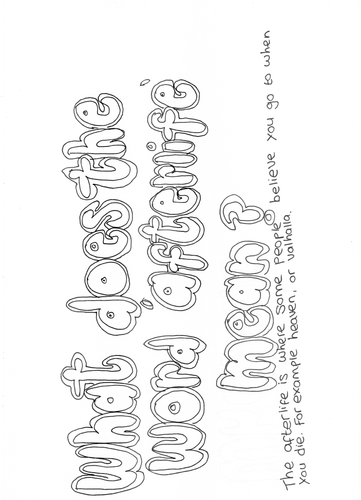 What does the
word afterlife
mean?
The afterlife is where some people believe you go to when
you die. For example heaven, or valhalla.